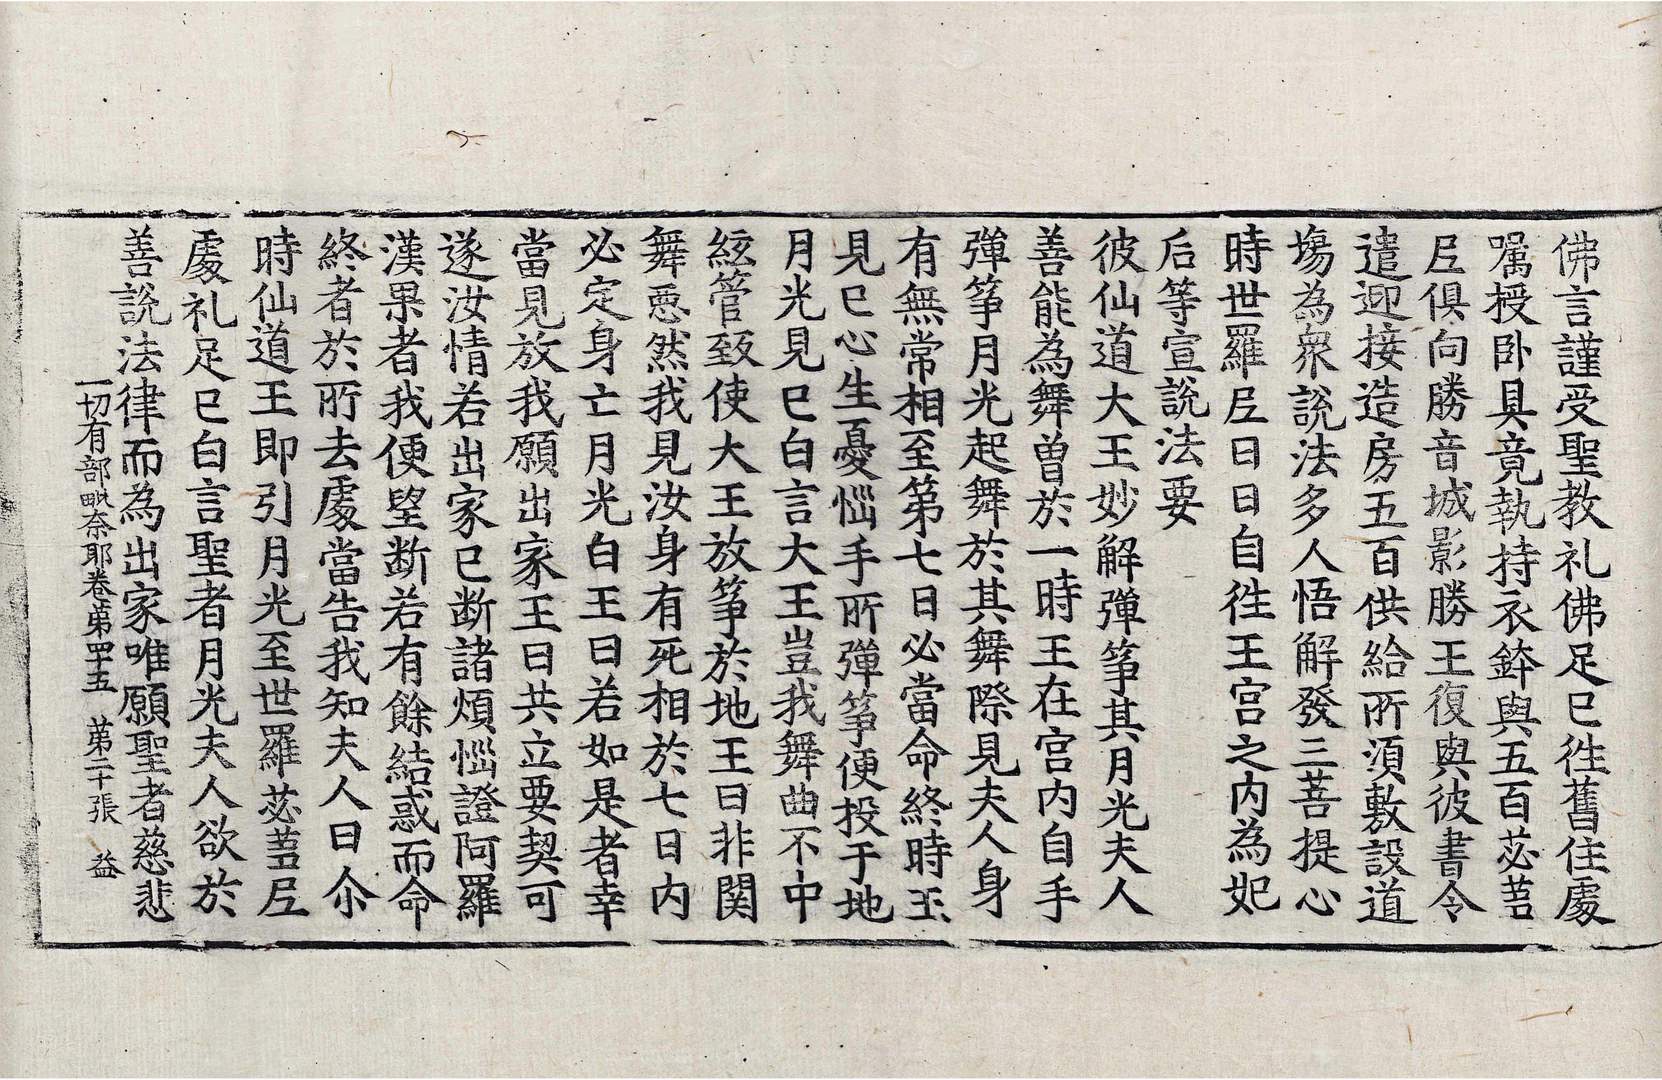 佛言謹受聖教礼佛足已徃舊住處
嘱授卧具竟執持衣鉢與五百苾芻
尼俱向勝音城影勝王復與彼書令
遣迎接造房五百供給所須敷設道
場為衆說法多人悟解發三菩提心
時世羅尼日日自徃王宮之內為妃
后等宣說法要
彼仙道大王妙解彈筝其月光夫人
善能為舞曾於一時王在宮內自手
彈筝月光起舞於其舞際見夫人身
有無常相至第七日必當命終時王
見已心生憂惱手所彈筝便投于地
月光見已白言大王豈我舞曲不中
絃管致使大王放筝於地王曰非関
舞惡然我見汝身有死相於七日內
必定身亡月光白王曰若如是者幸
當見放我願出家王曰共立要契可
遂汝情若出家已断諸煩惱證阿羅
漢果者我便望断若有餘結惑而命
終者於所去處當告我知夫人曰尒
時仙道王即引月光至世羅苾芻尼
處礼足已白言聖者月光夫人欲於
善說法律而為出家唯願聖者慈悲
一切有部毗奈耶卷第四十五 第二十張 益